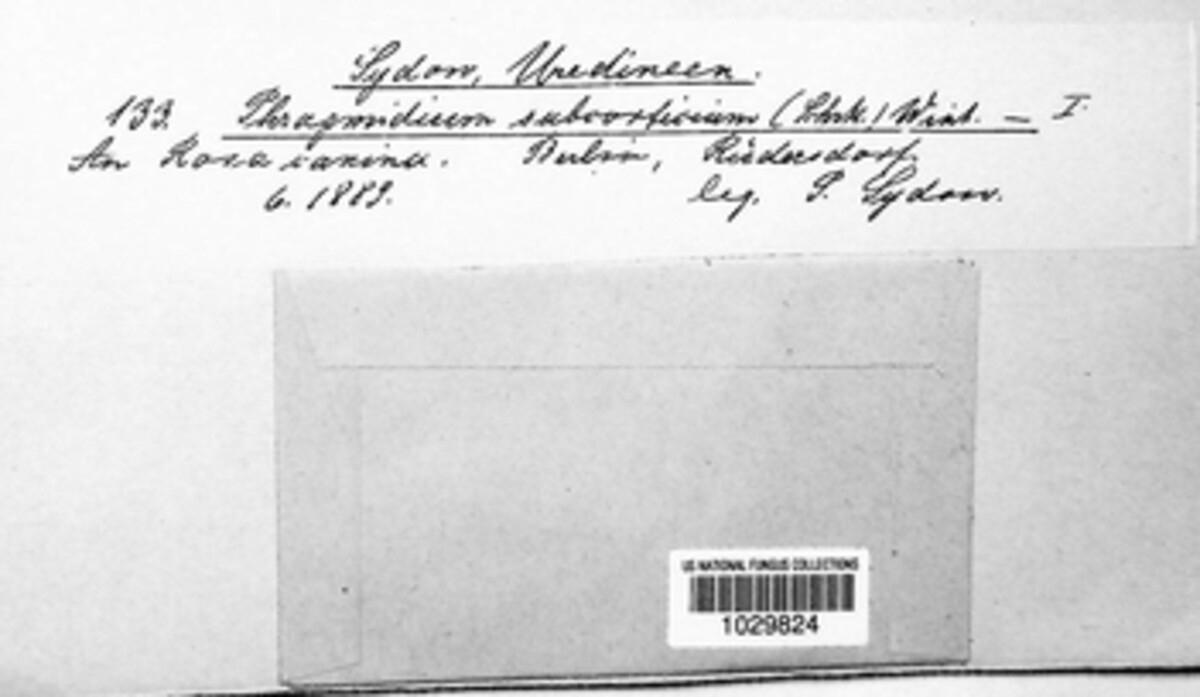 Sydow, Uredineen.
133. Phragmidium subcorticium (Schrk.) Wint. — I.
An Rosa canina. Berlin, Rüdersdorf.
6. 1889. leg. P. Sydow.
US NATIONAL FUNGUS COLLECTIONS
1029824